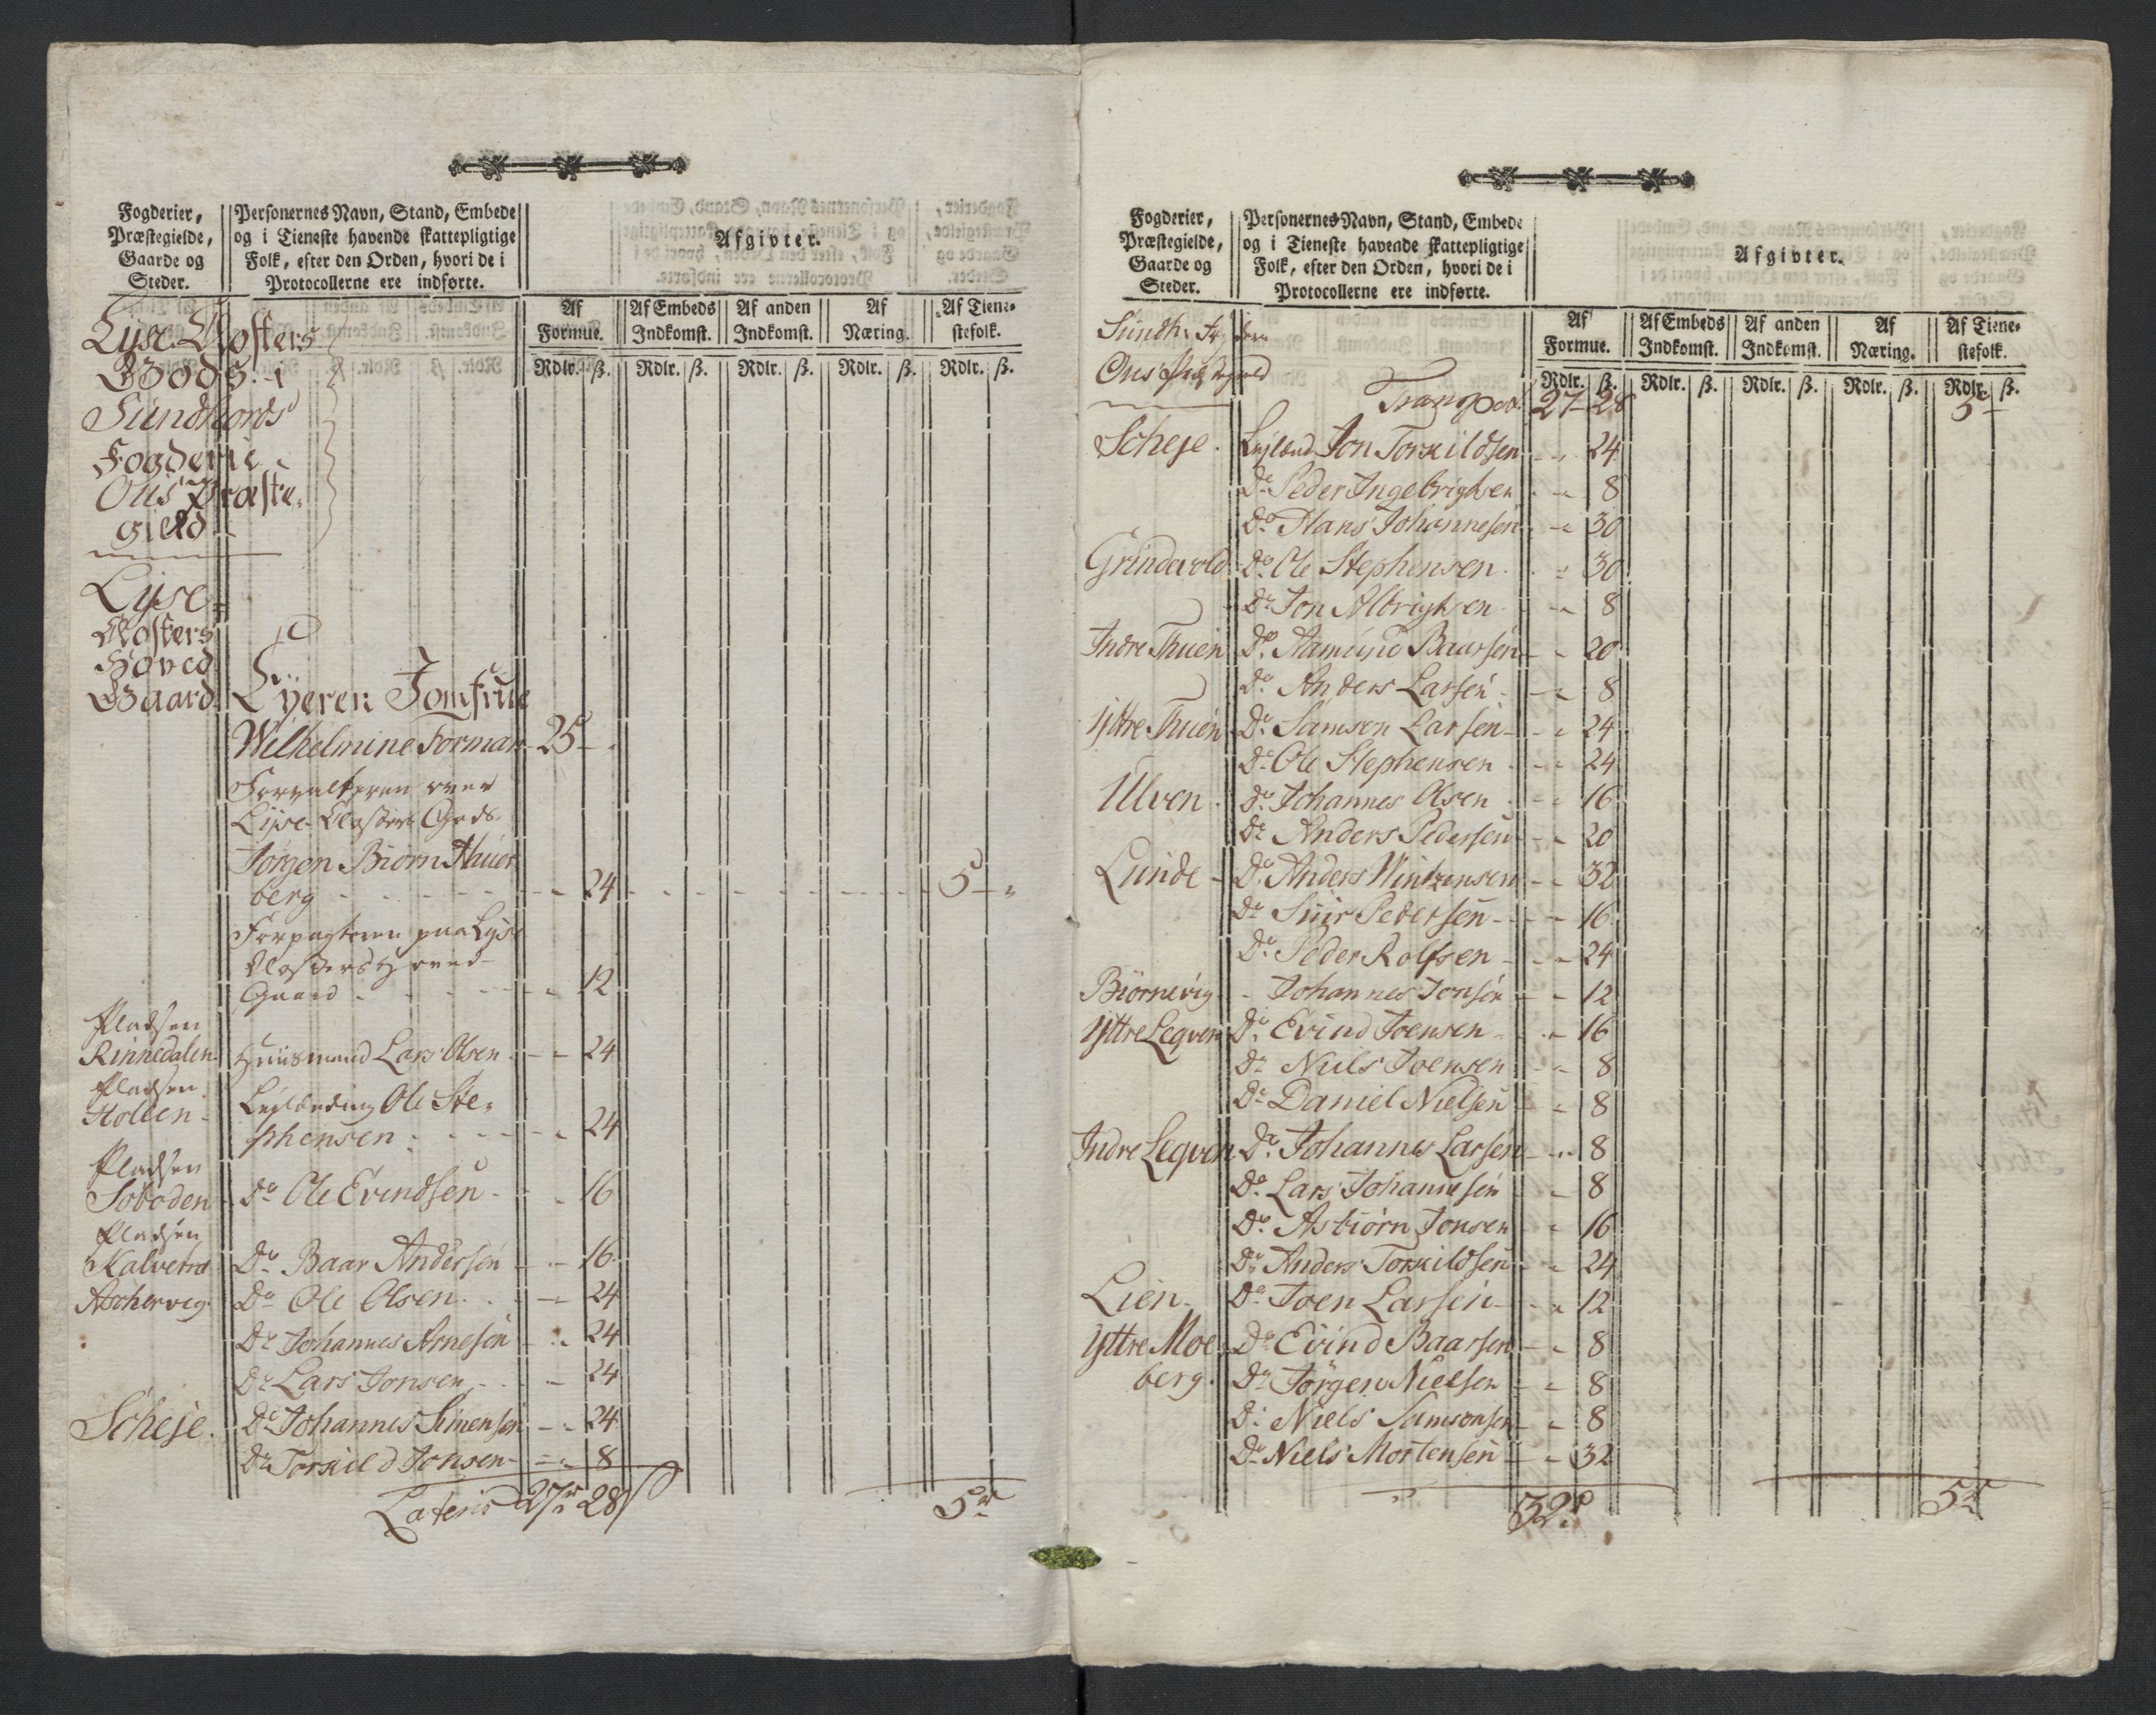 Fogderier,
Præstegielde,
Gaarde og
Steder.
Personernes Navn, Stand, Embede
og i Tieneste havende skattepligtige
Folk, efter den Orden, hvori de i
Protocollerne ere indførte.
Afgivter.
Af Formue. Af Embeds Indkomst. Af anden Indkomst. Af Næring. Af Tienestefolk.
Rdlr. ß. Rdlr. ß. Rdlr. ß. Rdlr. ß. Rdlr. ß.
Lyse Closters
Gods i
Sundhords
Fogderie
Ous Præste-
gield
Lyse
Closters
Hoved
Gaard. Eyeren Jomfrue
Wilhelmine Forman 25
Forvalteren over
Lyse Closters Gods
Jørgen Biørn Hauer
berg 24 5
Forpagteren paa Lyse
Closters Hoved-
Gaard 12
Pladsen
Rinnedalen Huusmand Lars Olsen 24
Pladsen
Hollen Leylænding Ole Ste-
phensen 24
Pladsen
Søboden Do Ole Evindsen 16
Pladsen
Kalvetræ Do Baar Andersen 16
Do Ole Olsen 24
Do Johannes Arnesen 24
Do Lars Jonsen 24
Scheje. Do Johannes Simensen 24
Do Torkild Jonsen 8
Lateris 27 28 5
Fogderier,
Præstegielde,
Gaarde og
Steder.
Personernes Navn, Stand, Embede
og i Tieneste havende skattepligtige
Folk, efter den Orden, hvori de i
Protocollerne ere indførte.
Afgivter.
Af Formue. Af Embeds Indkomst. Af anden Indkomst. Af Næring. Af Tienestefolk.
Rdlr. ß. Rdlr. ß. Rdlr. ß. Rdlr. ß. Rdlr. ß.
Sundh. Fogderi
Ous Præstegield
Transport 27 28 5
Scheje. Leylænd Jon Torkildsen 24
Do Peder Ingebrigtsen 8
Do Hans Johannesen 30
Grindevold Do Ole Stephensen 30
Do Jon Albrigtsen 8
Indre Thuen Do Aamund Baarsen 20
Do Anders Larsen 8
Yttre Thuen Do Samson Larsen 24
Do Ole Stephensen 24
Ulven Do Johannes Olsen 16
Do Anders Pedersen 20
Lunde Do Anders Wintzensen 32
Do Siur Pedersen 16
Do Peder Rolfsen 24
Biørnevig Johannes Jonsen 12
Yttre Leqven Do Evind Joensen 16
Do Niels Joensen 8
Do Daniel Nielsen 8
Indre Leqven Do Johannes Larsen 8
Do Lars Johannesen 8
Do Asbiørn Jonsen 16
Do Anders Torkildsen 24
Lien Do Joen Larsen 12
Yttre Moe- Do Evind Baarsen 8
berg. Do Jørgen Nielsen 8
Do Niels Samsonsen 8
Do Niels Mortensen 32
32 5